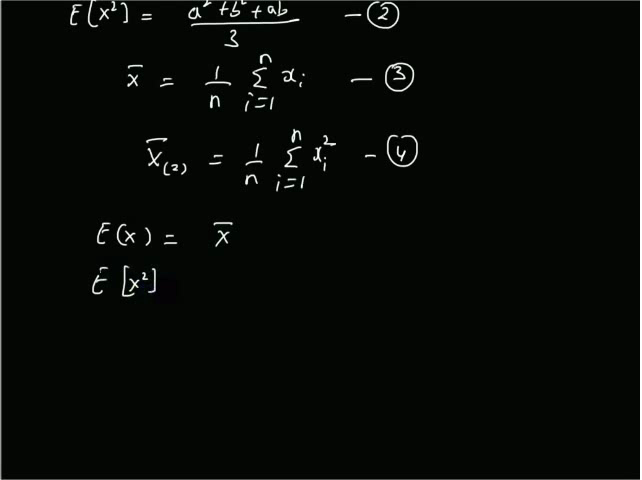 E[x²] = a² + b² + ab / 3 — ②
x̄ = 1/n ∑ i=1 n xᵢ — ③
X̄₍₂₎ = 1/n ∑ i=1 n xᵢ² — ④
E(x) = x̄
E[x²]